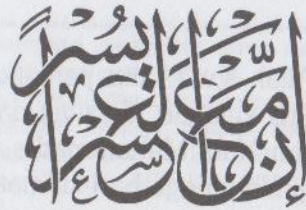 إن مع العسر يسراً